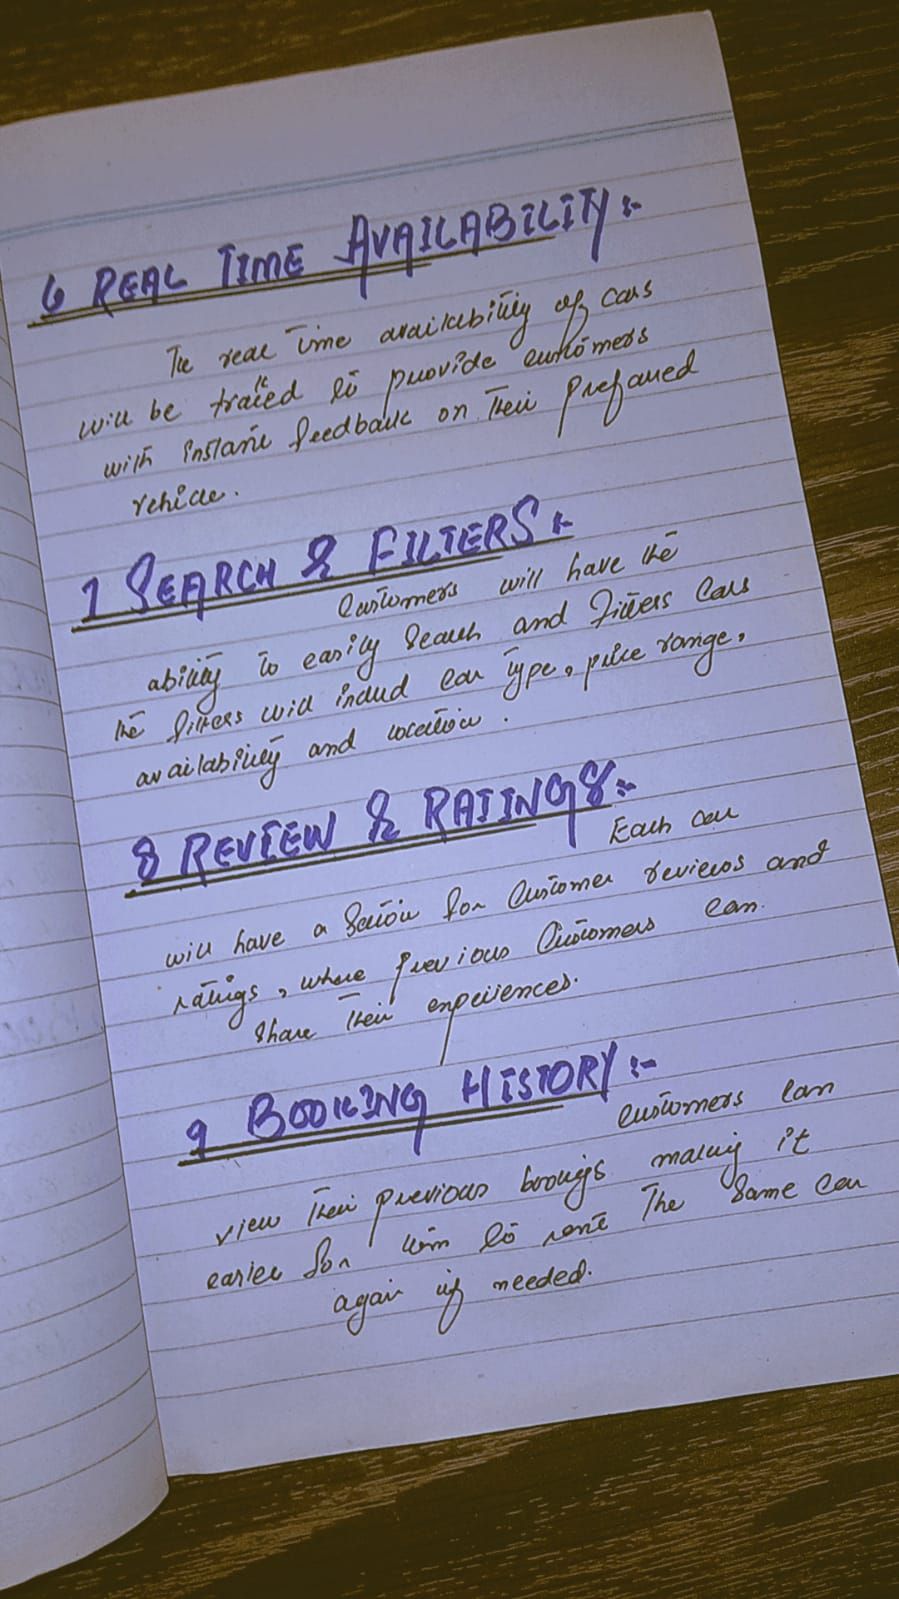 6 REAL TIME AVAILABILITY :-
The real time availability of cars
will be traked to provide customers
with instant feedback on their prefarred
vehicle.
7 SEARCH & FILTERS :-
Customers will have the
ability to easily search and filters cars
the filters will includ car type, price range,
availability and location.
8 REVIEW & RATINGS :-
Each car
will have a section for customer reviews and
ratings, where previous customers can
share their experiences.
9 BOOKING HISTORY :-
Customers can
view their previous bookings making it
easier for them to rent the same car
again if needed.